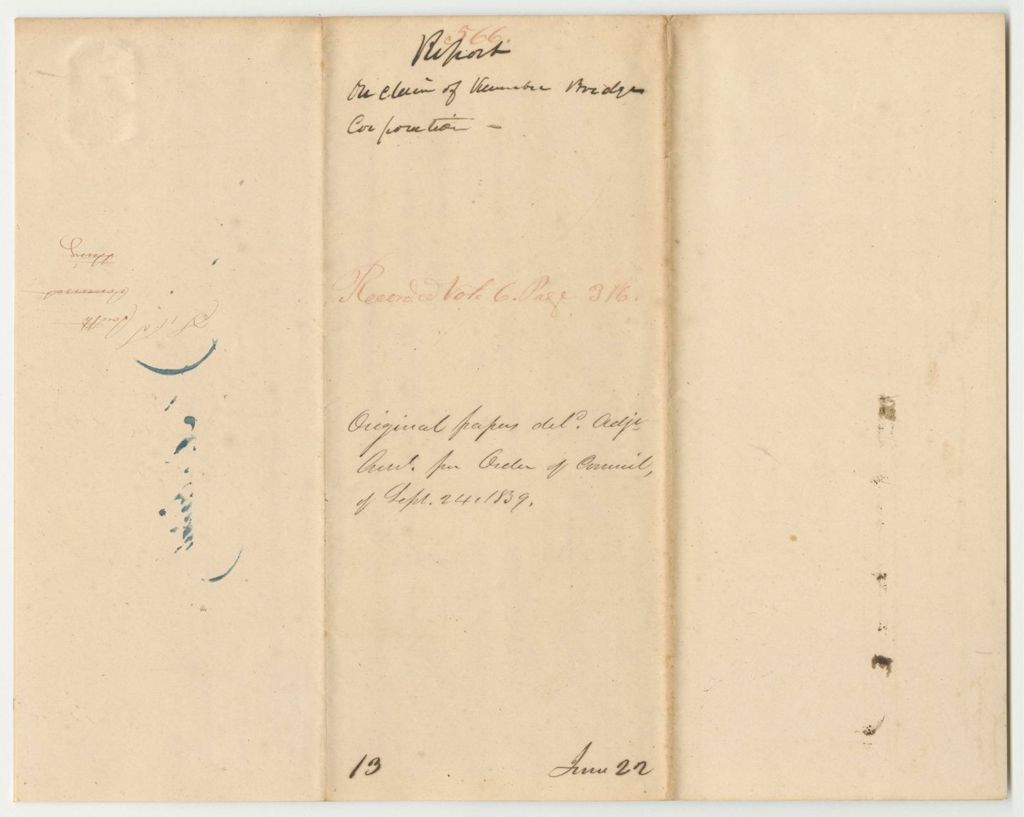 c566.
Report
On claim of Kennebec Bridge
Corporation –
Recorded Vol. 6. Page 316.
Original papers deld. Adjt
Genl. per Order of Council,
of Sept. 24. 1839.
13 June 22